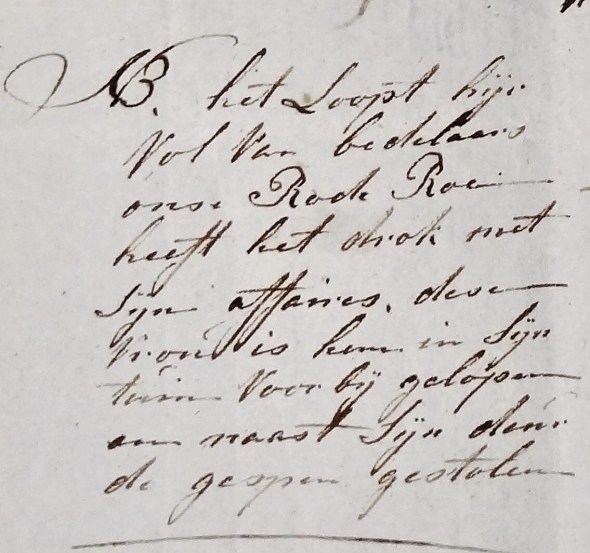 NB. het Loopt hijr
Vol Van bedelaars
onse Rode Roe
heeft het drok met
Sijn affaires. dese
Vrou is hem in Sijn
tuin Voor bij gelopen
en naast Sijn deur
de gespen gestolen